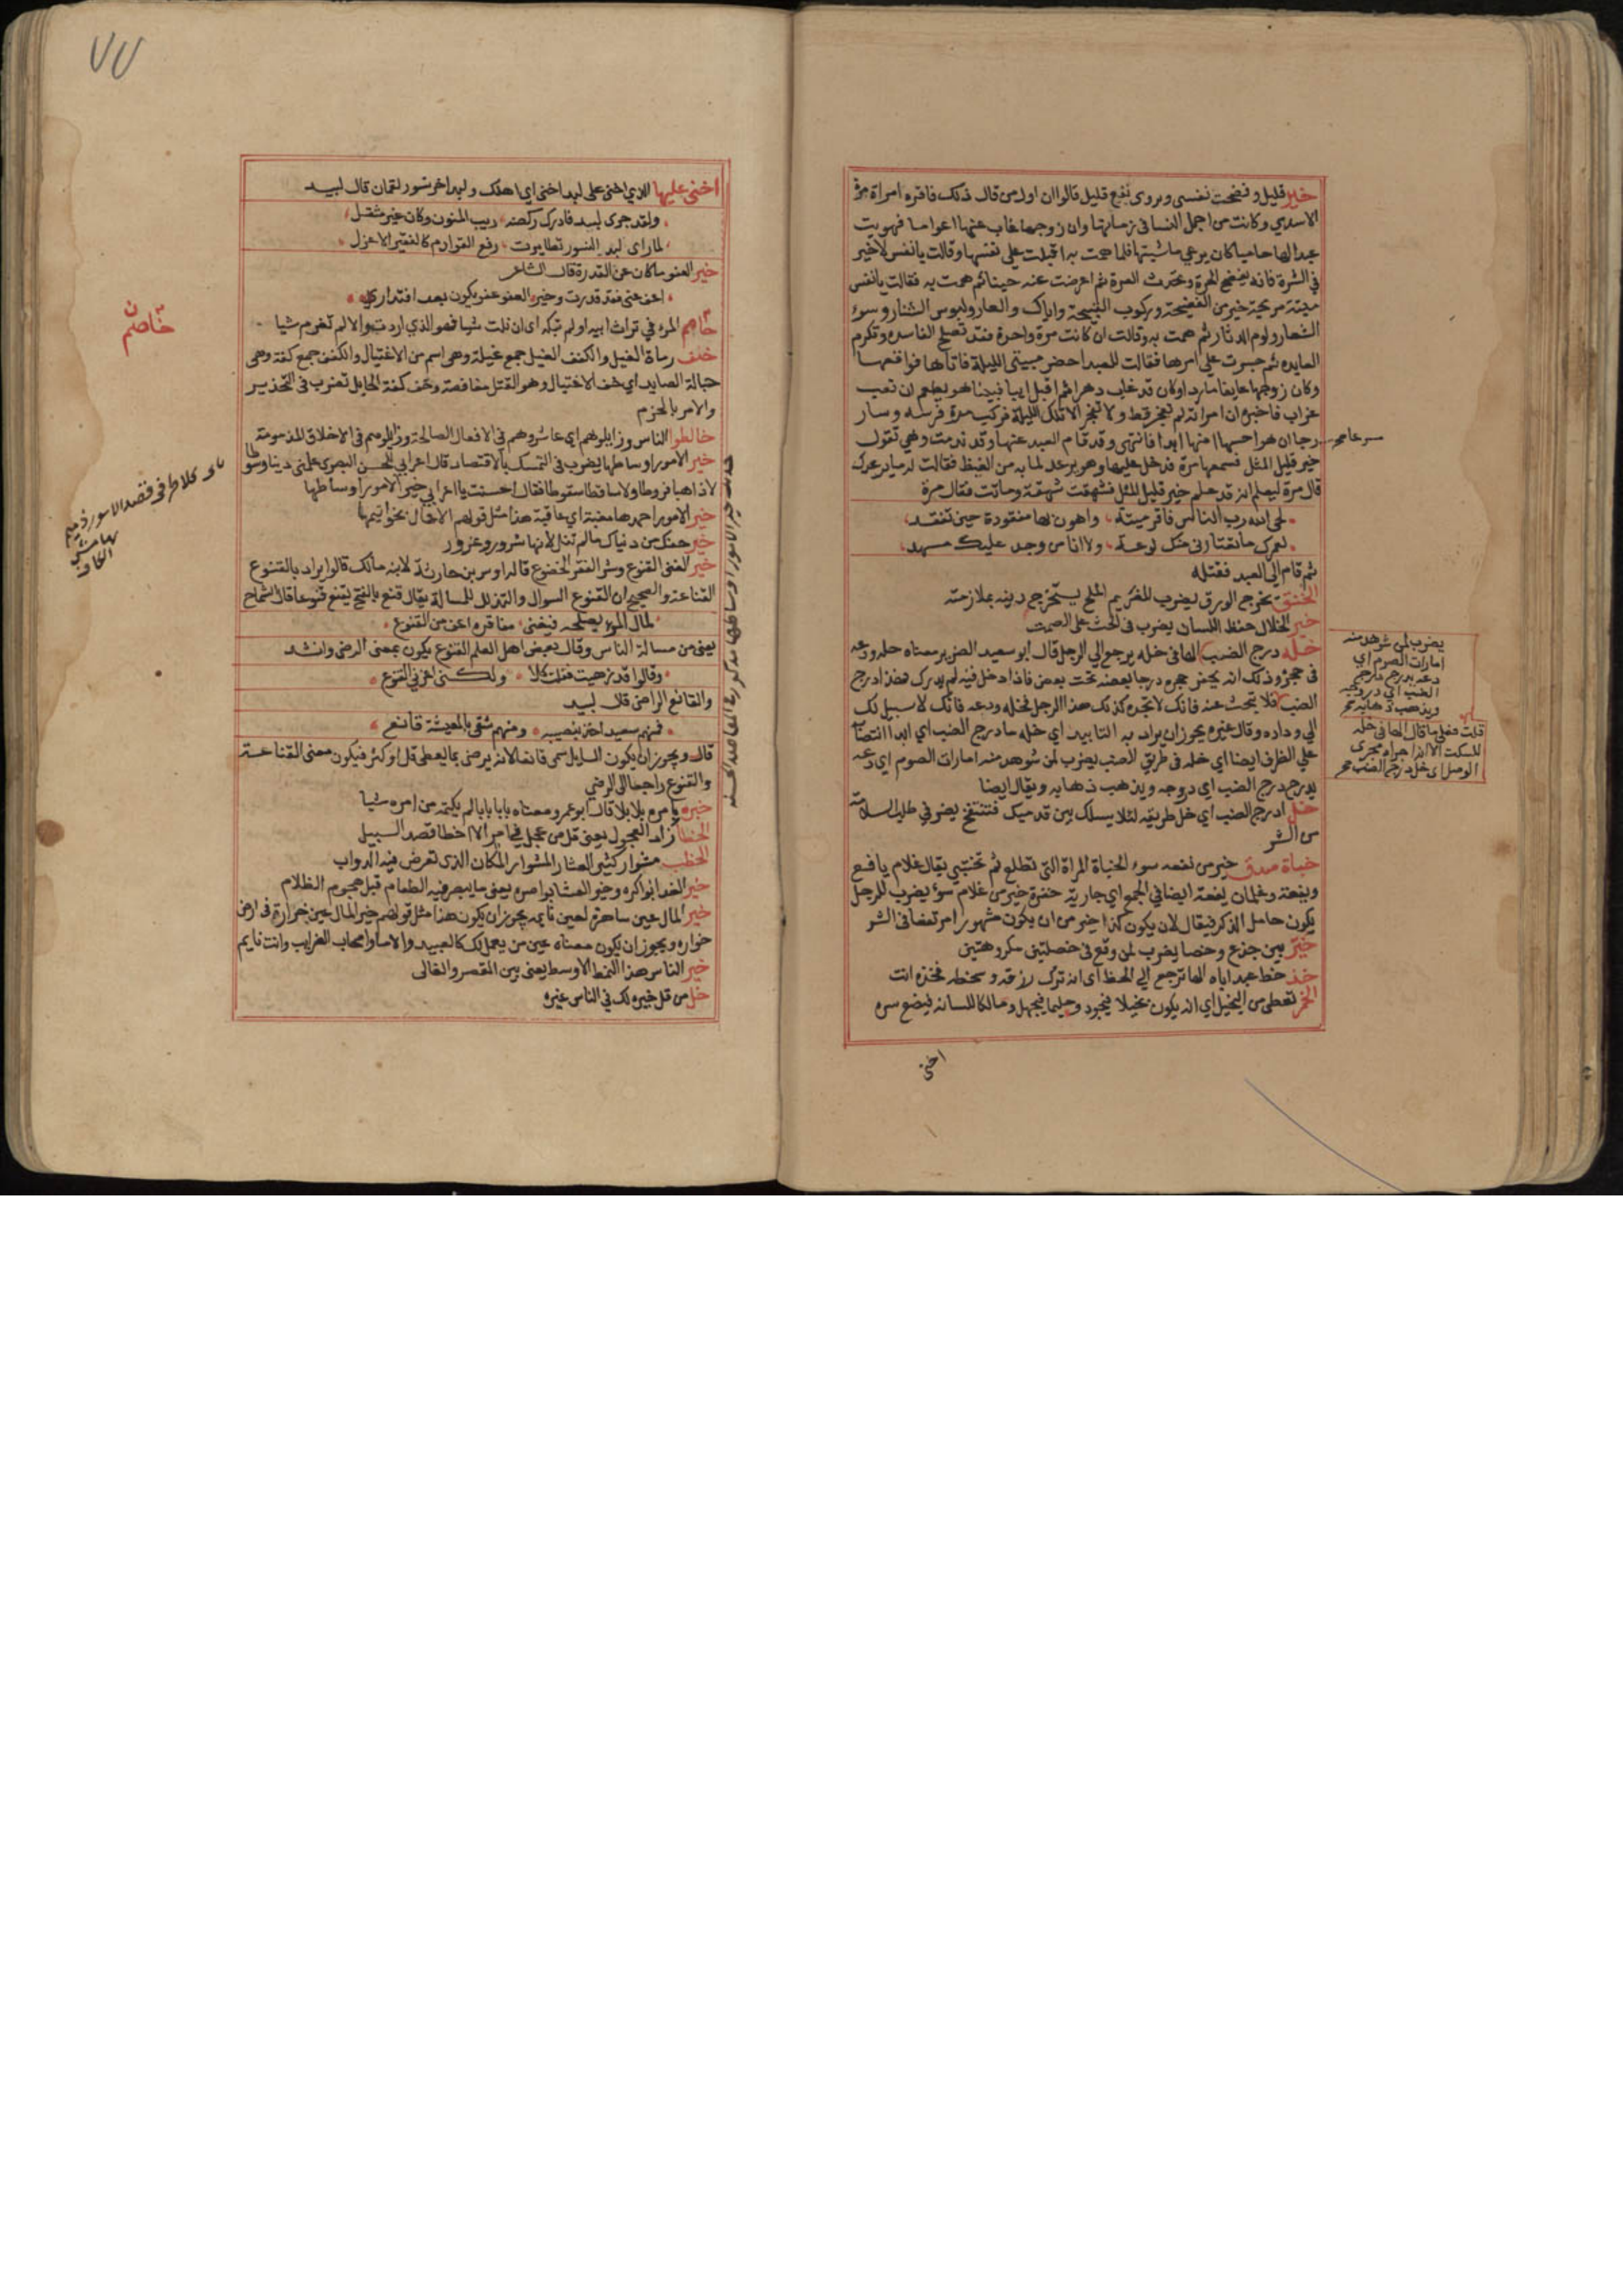 خير قليل وفضحت نفسى ويروى نفع قليل قالوا ان اول من قال ذلك فاقره امراة مرة
الاسدي وكانت من اجمل النسا فى زمانها وان زوجها غاب عنها اعواما فهويت
عبدا لها حاميا كان يرعي ماشيتها فلما همت به اقبلت علي نفسها وقالت يا نفس لا خير
في الشرة فانه يفضح الحرة ويحدث العرة ثم اعرضت عنه حينا ثم همت به فقالت يا نفس
ميتة مريحة خير من الفضيحة وركوب القبيحة واياك والعار ولبوس الشنار وسوء
الشعار ولوم الدثار ثم همت به وقالت ان كانت مرة واحدة فقد تصلح الفاسدة وتكرم
العايده ثم جسرت علي امرها فقالت للعبد احضر مبيتى الليلة فاتاها فواقعها
وكان زوجها عايفا ماردا وكان قد غاب دهرا ثم اقبل ايبا فبينا هو يطعم ان نعب
غراب فاخبره ان امراته لم تفجر قط ولا تفجر الا تلك الليلة فركب مرة فرسه وسار
مسرعا صح
رجا ان هو احسها امنها ابدا فانتهى وقد قام العبد عنها وقد ندمت وهي تقول
خير قليل المثل فسمعها مرة فدخل عليها وهو يرعد لما به من الغيظ فقالت له ما يرعدك
قال مرة ليعلم انه قد علم خير قليل المثل فشهقت شهقة وماتت فقال مرة
لحى الله رب الناس فاقر ميتة واهون بها مفقودة حين تفقد
لعمرك ما تعتادنى منك لوعة ولا انا من وجد عليك مسهد
ثم قام الى العبد فقتله
الخنق يخرج الورق يضرب للغريم الملح يستخرج دينه بملازمته
خير الخلال حفظ اللسان يضرب فى الحث على الصمت
خله درج الضب الها فى خله يرجع الي الرجل قال ابو سعيد الضرير معناه خله ودعه
فى جحره وذلك انه يحفر جحره درجا بعضه تحت بعض فاذا دخل فيه لم يدرك فهذا درج
الضب فلا تبحث عنه فانك لا تجده كذلك هذا الرجل فخله ودعه فانك لا سبيل لك
الي وداده وقال غيره يجوز ان يراد به التابيد اي خله ما درج الضب اي ابدا انتصابه
علي الظرف ايضا اي خله فى طريق الضب يضرب لمن شوهد منه امارات الصرم اي دعه
يدرج درج الضب اي دروجه ويذهب ذهابه ويقال ايضا
خل درج الضب اي خل طريقه لئلا يسلك بين قدميك فتنتفخ يضرب في طلب السلامة
من الشر
خباة صدق خير من يفعه سوء الخباة المراة التى تطلع ثم تختبى يقال غلام يافع
ويفعة وغلمان يفعة ايضا في الجمع اي جارية خفرة خير من غلام سوء يضرب للرجل
يكون خامل الذكر فيقال لان يكون كذا خير من ان يكون مشهورا مرتفعا فى الشر
خير بين جذع وخصا يضرب لمن وقع فى خصلتين مكروهتين
خذ حظ عبد اباه الها ترجع الي الحظ اى انه ترك رزقه وسخطه فخذه انت
الخمر تعطى من البخيل اي انه يكون بخيلا فيجود وحليما فيجهل ومالكا للسانه فيضع سره
اخنى
يضرب لمن شوهد منه
امارات الصرم اي
دعه يدرج درج
الضب اي دروجه
ويذهب ذهابه صح
قلت فعلى ما قال الها فى خله
للسكت الا انه اجراه مجرى
الوصل اى خل درج الضب صح
٧٧
اخنى عليها الذي اخنى على لبد اخنى اي اهلك ولبد اخر نسور لقمان قال لبيد
ولقد جرى لبد فادرك ركضه ريب المنون وكان غير مثقل
لما راى لبد النسور تطايرت رفع القوادم كالفقير الاعزل
خير العفو ما كان عن القدرة قال الشاعر
اعف عنى فقد قدرت وخير العفو عفو يكون بعد اقتدار
خاصم المرء في تراث ابيه او لم تبكه اى ان نلت شيا فهو الذي اردت والا لم تغرم شيا
خف رماة الغيل والكفف الغيل جمع غيلة وهى اسم من الاغتيال والكفف جمع كفة وهى
حبالة الصايد اي خف الاغتيال وهو القتل مغافصة وخف كفة الحابل تضرب فى التحذير
والامر بالحزم
خالطوا الناس وزايلوهم اي عاشروهم فى الافعال الصالحة وزايلوهم فى الاخلاق المذمومة
خير الامور اوساطها يضرب فى التمسك بالاقتصاد قال اعرابي للحسن البصرى علمنى دينا وسوطا
لا ذاهبا فروطا ولا ساقطا سقوطا فقال احسنت يا اعرابي خير الامور اوساطها
خير الامور احمدها مغبة اي عاقبة هذا مثل قولهم الاعمال بخواتيمها
خير حظك من دنياك ما لم تنل لانها شرور وغرور
خير الغنى القنوع وشر الفقر الخضوع قاله اوس بن حارثة لابنه مالك قالوا يراد بالقنوع
القناعة والصحيح ان القنوع السوال والتذلل للمسالة يقال قنع بالفتح يقنع قنوعا قال الشماخ
لمال المرء يصلحه فيغنى مفاقره اعف من القنوع
يعنى من مسالة الناس وقال بعض اهل العلم القنوع يكون بمعنى الرضى وانشد
وقالوا قد زهيت فقلت كلا ولكنى اعزنى القنوع
والقانع الراضى قال لبيد
فمنهم سعيد اخذ بنصيبه ومنهم شقى بالمعيشة قانع
قال ويجوز ان يكون السايل سمى قانعا لانه يرضى بما يعطى قل او كثر فيكون معنى القناعة
والقنوع راجعا الى الرضى
خبره بامره بلا بلا قال ابو عمرو معناه بابا بابا لم يكتمه من امره شيا
الخطا زاد العجول يعنى قل من عجل في امر الا اخطا قصد السبيل
الخطب مشوار كثير العثار المشوار المكان الذى تعرض فيه الدواب
خير الغدا بواكره وخير العشا بواصره يعنى ما يبصر فيه الطعام قبل هجوم الظلام
خير المال عين ساهرة لعين نايمه يجوز ان يكون هذا مثل قولهم خير المال عين خرارة فى ارض
خواره ويجوز ان يكون معناه عين من يعمل لك كالعبيد والاما واصحاب الضرايب وانت نايم
خير الناس هذا النمط الاوسط يعنى بين المقصر والغالى
خل من قل خيره لك فى الناس غيره
خاصم
حديث خير الامور اوساطها مذكور فى المقاصد الحسنه
كلا طرفى قصد الامور ذميم